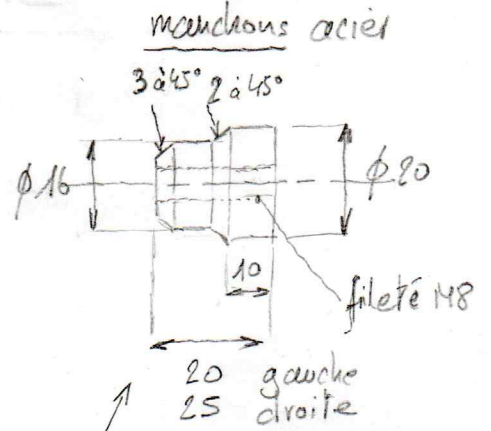 manchons acier
3 à 45° 2 à 45°
φ 16
φ 20
10
fileté M8
20 gauche
25 droite